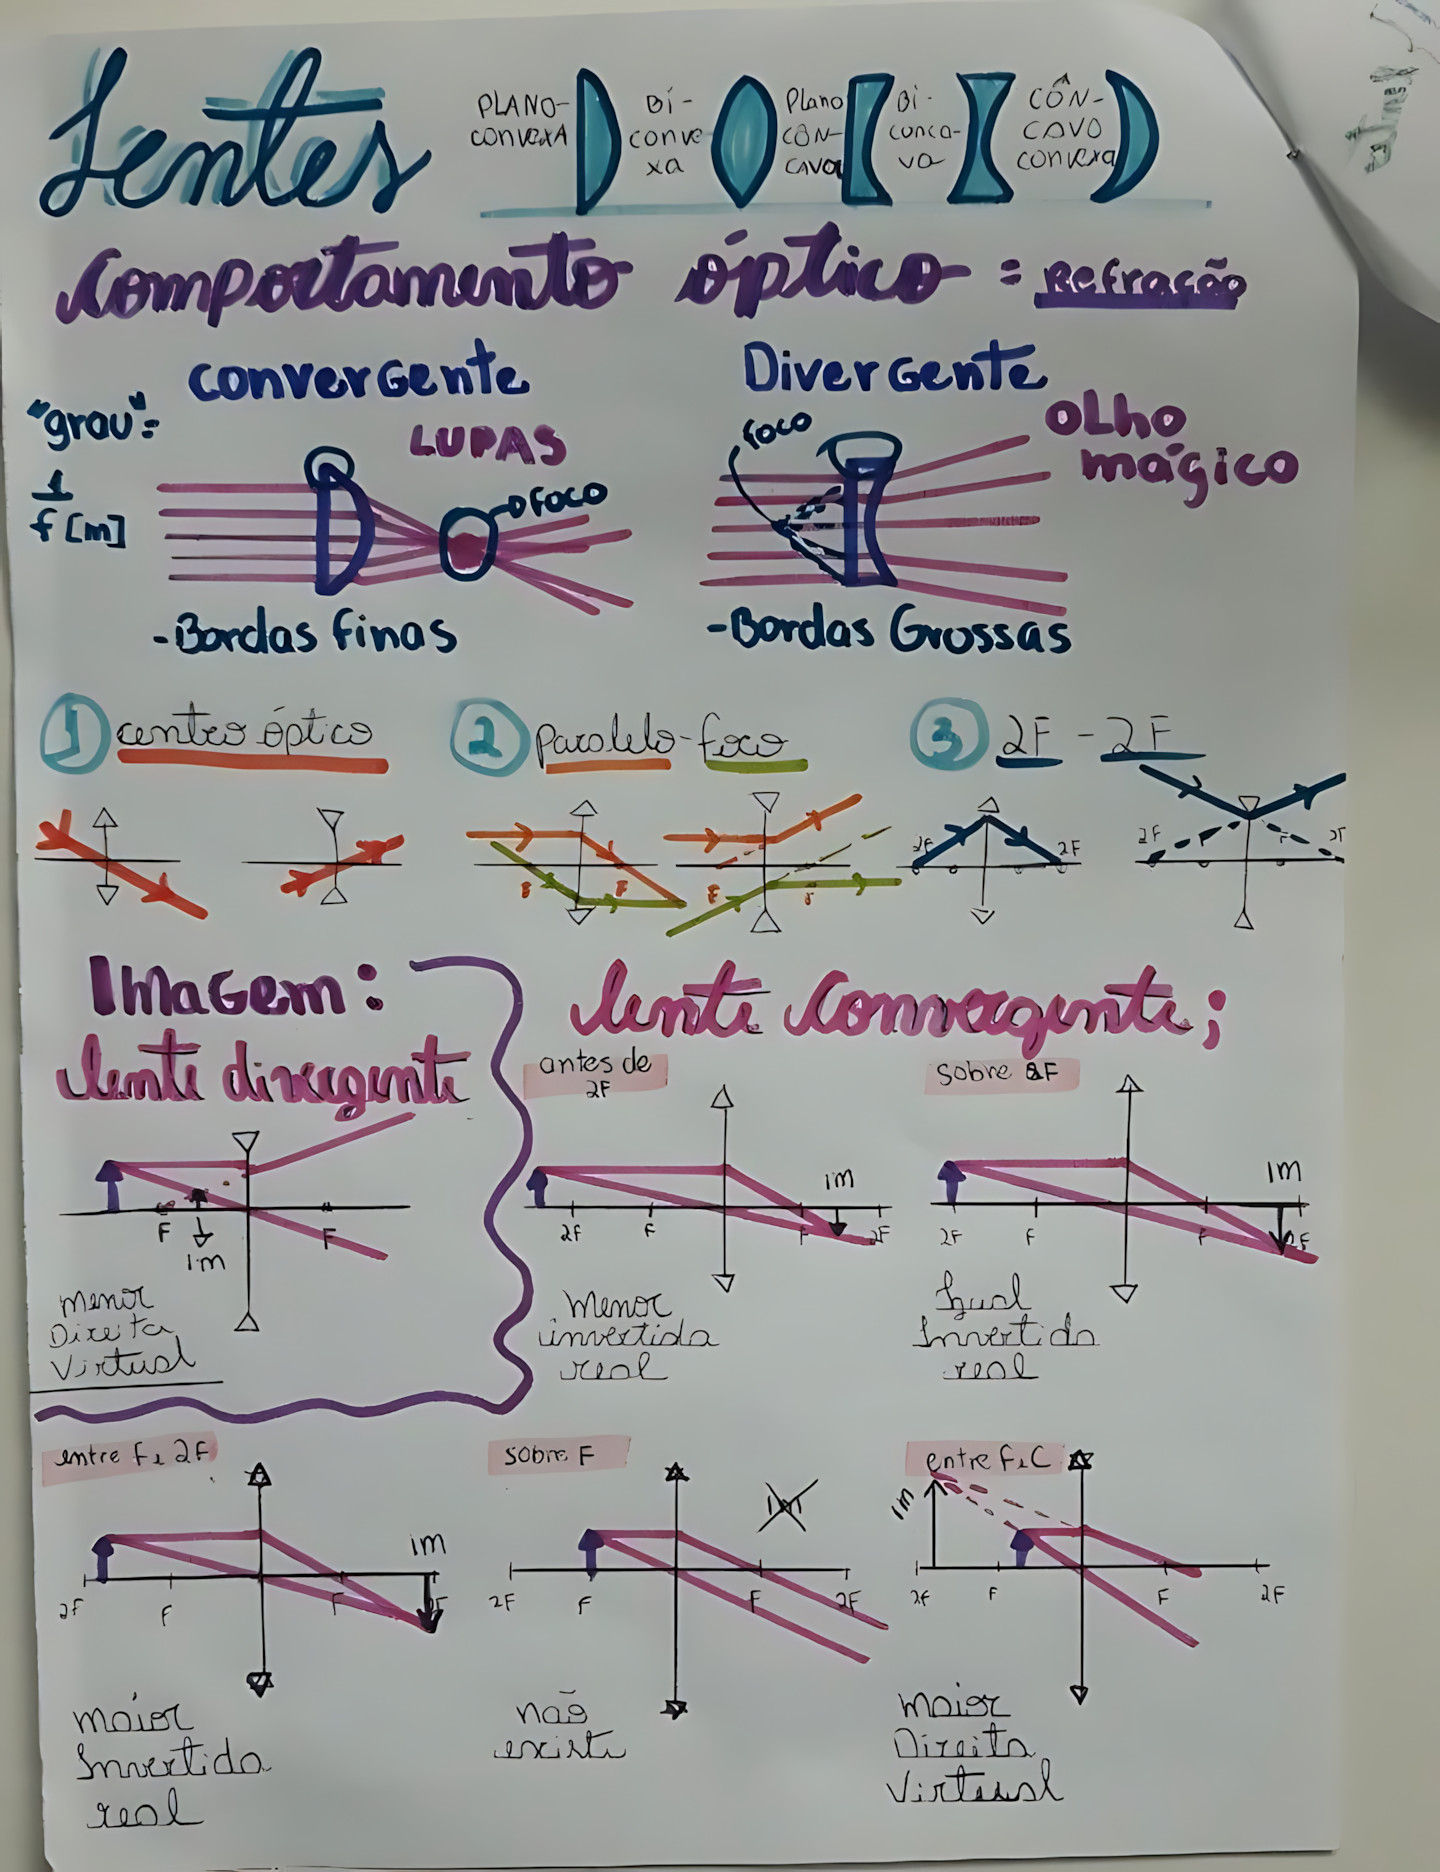 Lentes
PLANO-
CONVEXA
Bí-
conve
xa
Plano
CÔN-
CAVA
Bi-
conca-
va
CÔN-
CAVO
convexa
Comportamento óptico = Refração
convergente
Divergente
"grau"=
1
f [m]
LUPAS
foco
foco
olho
mágico
-Bordas finas
-Bordas Grossas
1 centro óptico
2 paralelo-foco
3 2F - 2F
F
F
F
F
2F
2F
2F
F
F
2F
Imagem:
lente divergente
lente convergente;
F
F
im
menor
Direita
Virtual
antes de
2F
2F
F
F
2F
im
menor
invertida
real
sobre 2F
2F
F
F
2F
im
Igual
Invertida
real
entre F e 2F
2F
F
F
2F
im
maior
Invertida
real
sobre F
2F
F
F
2F
im
não
existe
entre F e C
im
2F
F
F
2F
maior
Direita
Virtual